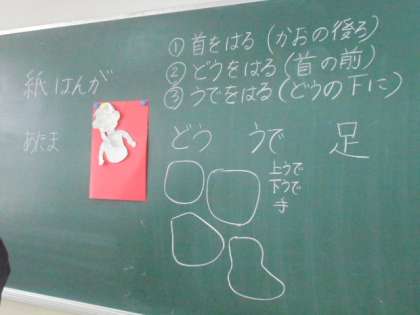 紙はんが
あたま
① 首をはる (かおの後ろ)
② どうをはる (首の前)
③ うでをはる (どうの下に)
どう うで 足
上うで
下うで
手